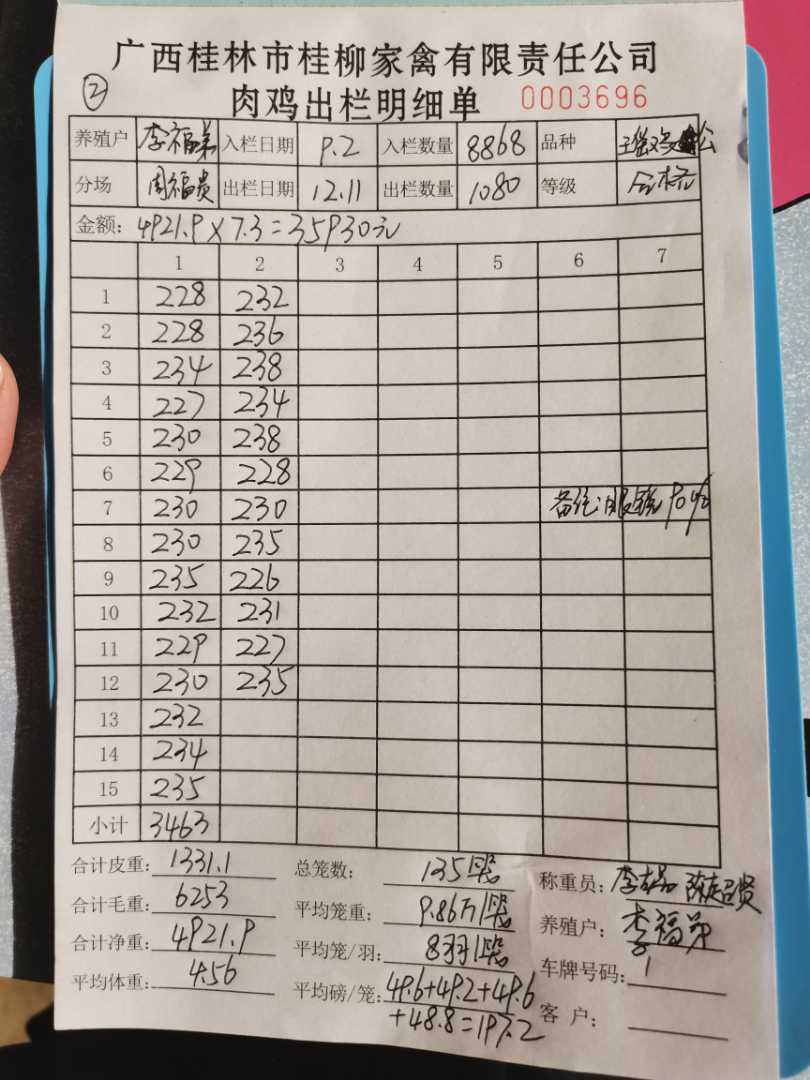 广西桂林市桂柳家禽有限责任公司
②
肉鸡出栏明细单 0003696
养殖户 李福弟 入栏日期 9.2 入栏数量 8868 品种 瑶鸡 公
分场 周福贵 出栏日期 12.11 出栏数量 1080 等级 合格
金额: 4921.9×7.3=35930元
1 2 3 4 5 6 7
1 228 232
2 228 236
3 234 238
4 227 234
5 230 238
6 229 228
7 230 230 备注:
8 230 235
9 235 226
10 232 231
11 229 227
12 230 235
13 232
14 234
15 235
小计 3463
合计皮重: 1331.1 总笼数: 135 称重员:
合计毛重: 6253 平均笼重: 9.86 养殖户: 李福弟
合计净重: 4921.9 平均笼/羽: 8羽 车牌号码: 1
平均体重: 4.56 平均磅/笼: 49.6+49.2+49.6 客 户:
+48.8=197.2